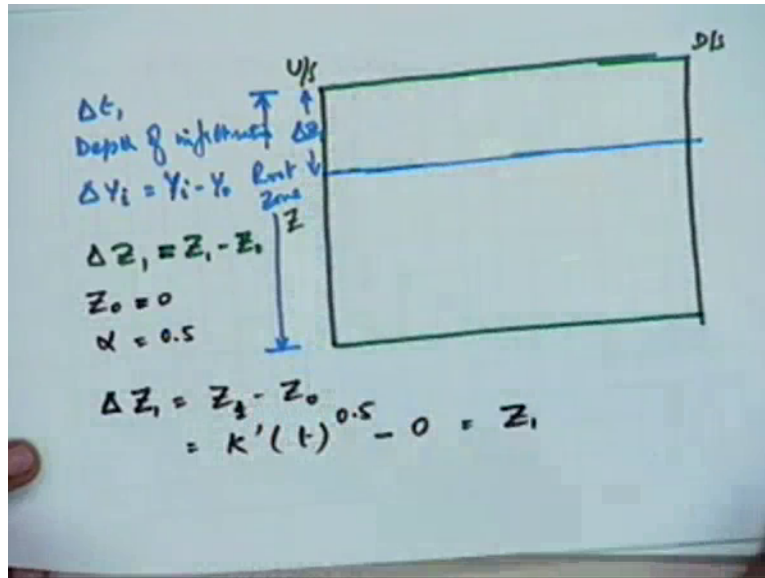 U/s
D/s
Δt,
Depth of infiltration
ΔYi = Yi - Yo
Root
Zone
Z
ΔZ
ΔZ₁ = Z₁ - Z₀
Z₀ = 0
α = 0.5
ΔZ₁ = Z₁ - Z₀
= K'(t)^0.5 - 0 = Z₁